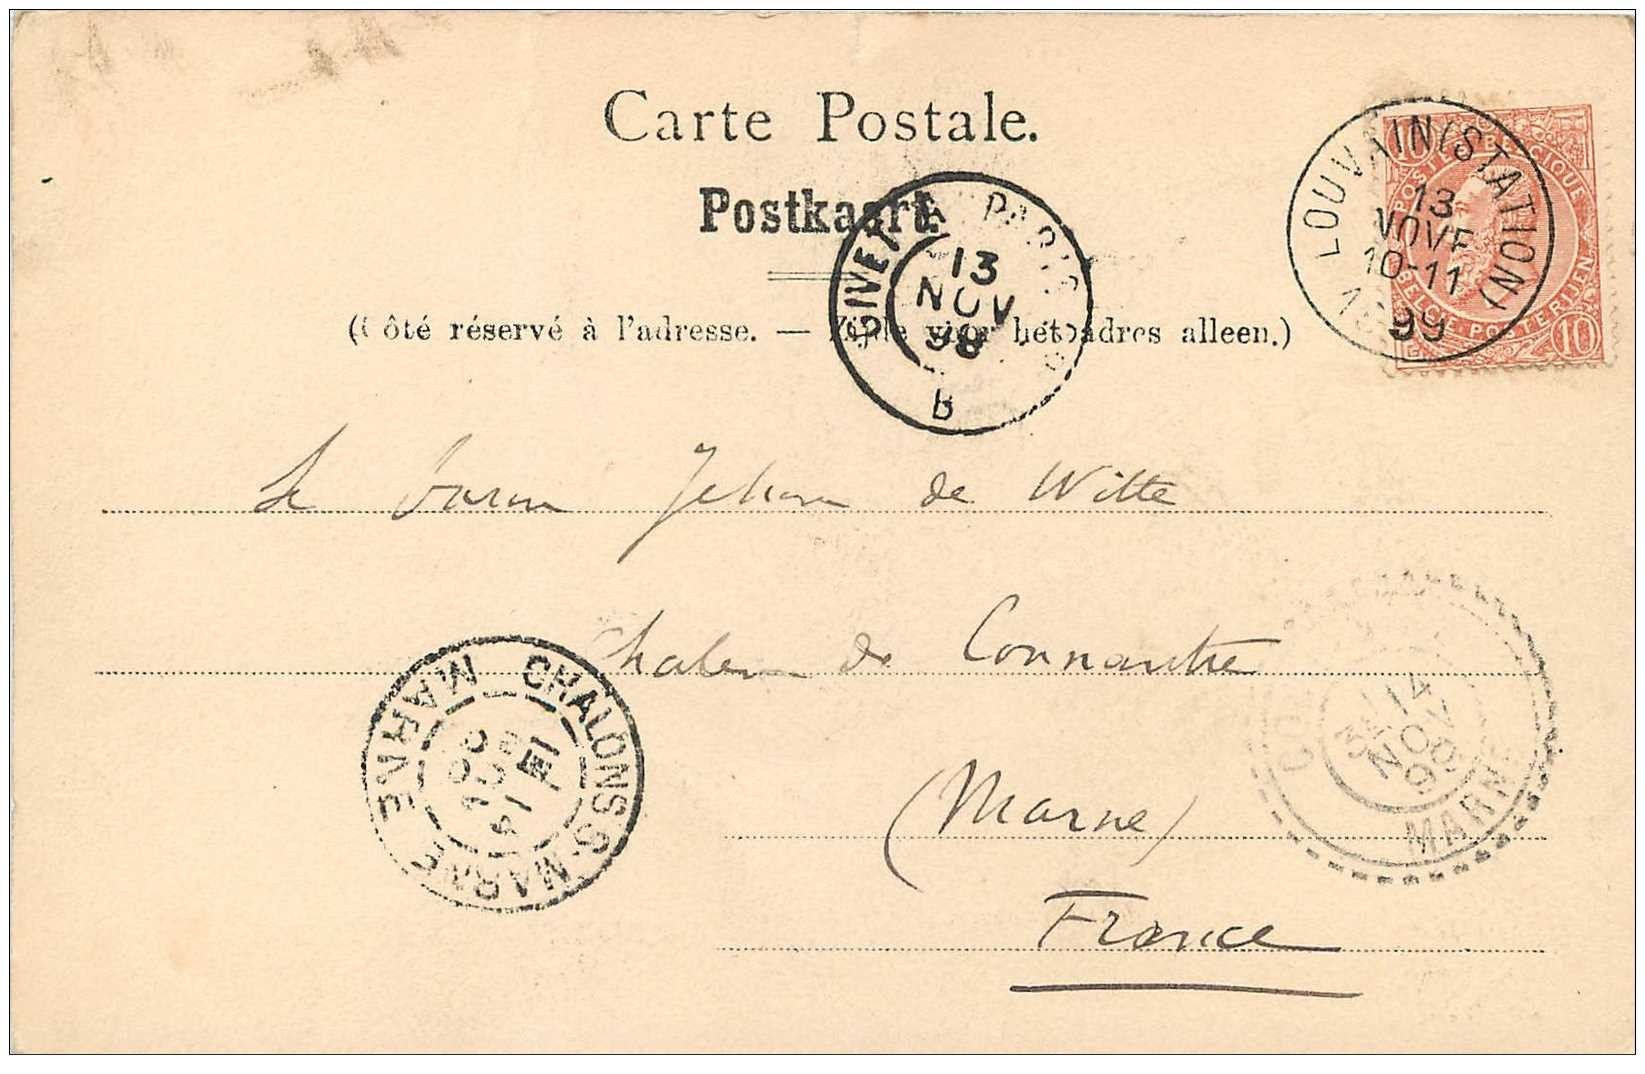 Carte Postale.
Postkaart.
(Côté réservé à l'adresse. — Zijde voor het adres alleen.)
LOUVAIN (STATION)
13
NOVE
10-11
1899
POSTES BELGIQUE
BELGIE POSTERIJEN
10
10
GIVET A PARIS
13
NOV
98
B
Le baron Jehan de Witte
Chalons de Connantre
(Marne)
France
CHALONS-S-MARNE
MARNE
14
NOV
99
MARNE